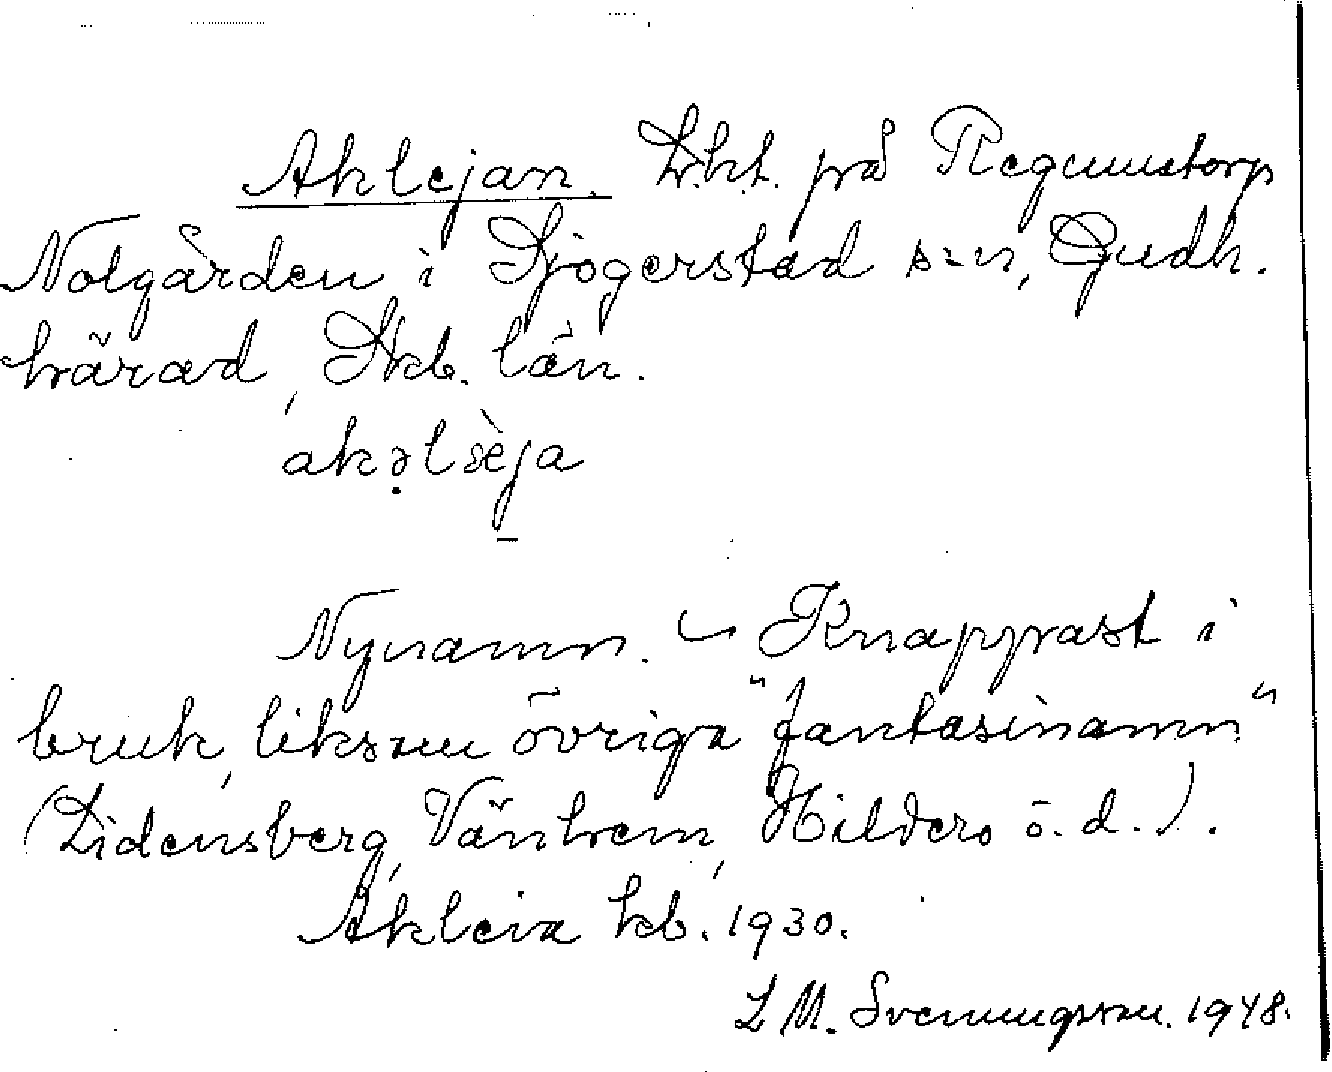 Aklejan. Lht. på Regumstorp
Nolgården i Sjogerstad s-n, Gudh.
härad, Skb. län.
akəlsèja
Nynamn. – Knappast i
bruk, liksom övriga "fantasinamn"
(Lidensberg, Vänhem, Hildero o. d.).
Akleia kb. 1930.
L M. Svenungsson. 1948.